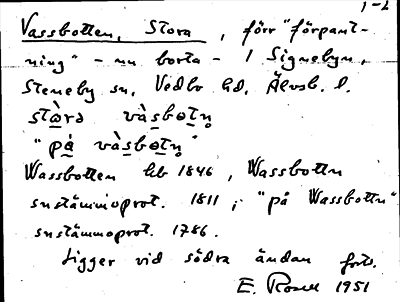 1-2
Vassbotten, Stora, förr "förpant-
ning" - nu borta - 1 Signebyn,
Steneby sn, Vedbo hd, Älvsb. l.
stɷ̀rə vàsbɷtn̥
"på̀ vàsbɷtn̥"
Wassbotten hb 1846, Wassbottn
snstämmoprot. 1811; "på Wassbottn"
snstämmoprot. 1786.
Ligger vid södra ändan forts.
E. Rosell 1951